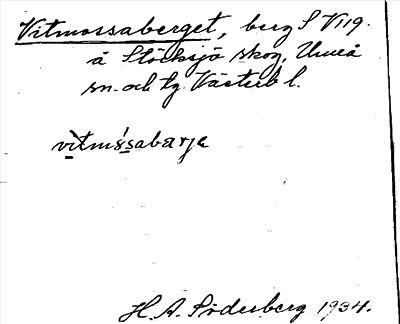 Vitmossaberget, berg S V119.
å Stöcksjö skog, Umeå
sn. och tg. Västerb l.
vitmɷsabarje
H. A. Söderberg 1934.